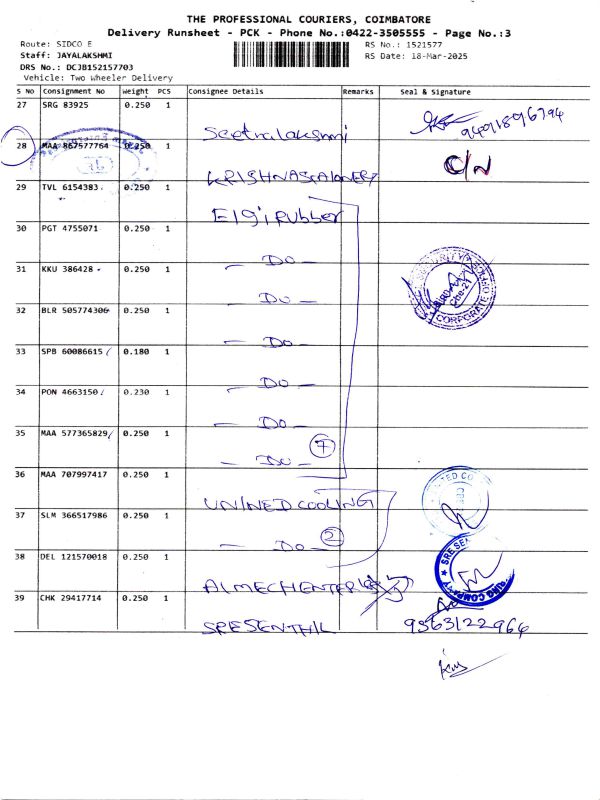 THE PROFESSIONAL COURIERS, COIMBATORE
Delivery Runsheet - PCK - Phone No.:0422-3505555 - Page No.:3
Route: SIDCO E RS No.: 1521577
Staff: JAYALAKSHMI RS Date: 18-Mar-2025
DRS No.: DCJB152157703
Vehicle: Two Wheeler Delivery
S No Consignment No Weight PCS Consignee Details Remarks Seal & Signature
27 SRG 83925 0.250 1 Seetralakshmi 9491896794
28 MAA 867577764 0.250 1 KRISHNA C/N
29 TVL 6154383 0.250 1 Elgi Rubber
30 PGT 4755071 0.250 1 — Do —
31 KKU 386428 0.250 1 — Do —
32 BLR 505774306 0.250 1 — Do —
33 SPB 60086615 0.180 1 — Do —
34 PON 4663150 0.230 1 — Do —
35 MAA 577365829 0.250 1 — Do — 7
36 MAA 707997417 0.250 1 UNINED COOLING
37 SLM 366517986 0.250 1 — Do — 2
38 DEL 121570018 0.250 1 ALMECH ENTER
39 CHK 29417714 0.250 1 SRE SENTHIL 9363122964
SECURITY
CORPORATE
SRE SE